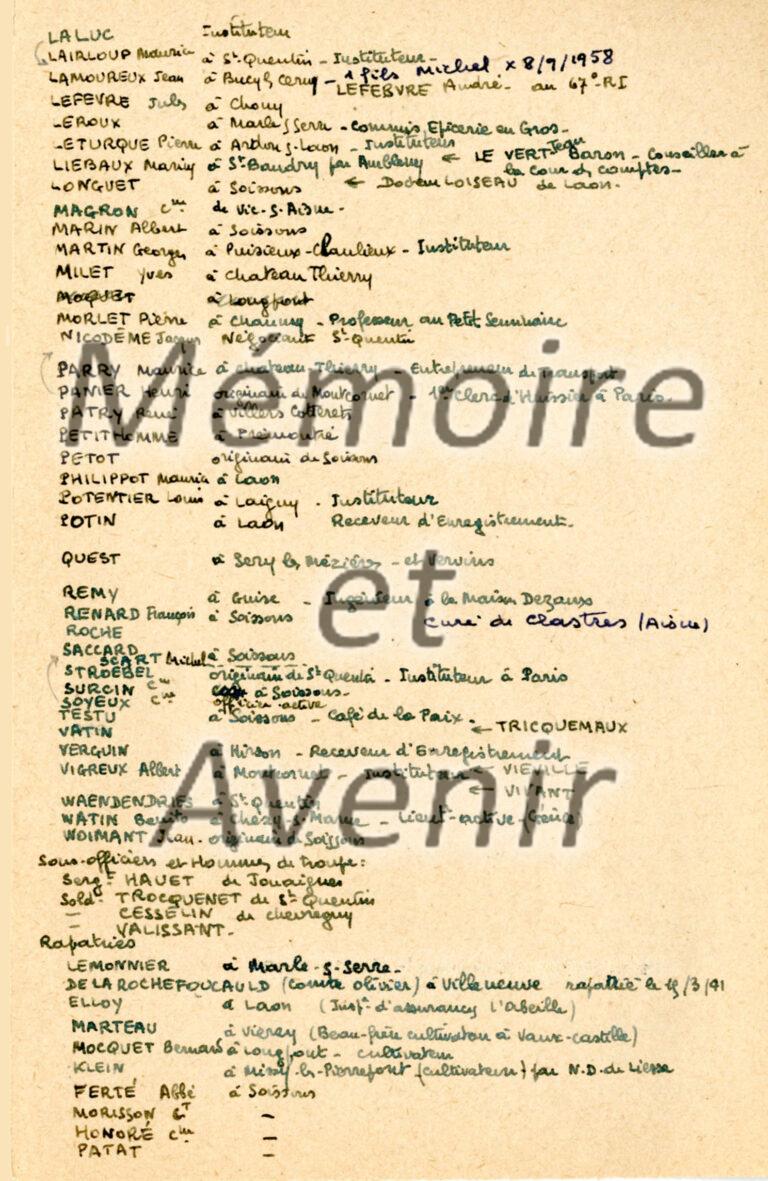 LALUC Instituteur
LAIRLOUP Maurice à St Quentin - Instituteur -
LAMOUREUX Jean à Bucy le Cerny - 1 fils Michel x 8/9/1958
LEFEBVRE André - au 67e RI
LEFEVRE Jules à Chouy
LEROUX à Marle s/Serre - Commis Epicerie en Gros -
LETURQUE Pierre à Ardon s. Laon - Instituteur
LIEBAUX Marius à St Bandry par Ambleny ← LE VERT Jean Baron - Conseiller à
la Cour des comptes -
LONGUET à Soissons ← Docteur LOISEAU de Laon.
MAGRON Cne de Vic-s-Aisne -
MARIN Albert à Soissons
MARTIN Georges à Puisieux-Chanlieux - Instituteur
MILET Yves à Chateau Thierry
MOQUET à Longpont
MORLET Pierre à Chauny - Professeur au Petit Seminaire
NICODÈME Jacques Négociant St-Quentin
PARRY Maurice à Chateau-Thierry - Entrepreneur de transport
PANIER Henri originaire de Montcornet - 1er Clerc d'Huissier à Paris.
PATRY René à Villers Cotterets
PETITHOMME à Prémontré
PETOT originaire de Soissons
PHILIPPOT Maurice à Laon
POTENTIER Louis à Laigny - Instituteur
POTIN à Laon Receveur d'Enregistrement -
QUEST à Sery les Mézières - et Vervins
REMY à Guise - Ingénieur à la Maison Dezaux
RENARD François à Soissons curé de Clastres (Aisne)
ROCHE
SACCARD
SCART Michel à Soissons
STROEBEL originaire de St Quentin - Instituteur à Paris
SURCIN Cne à Soissons -
SOYEUX Cne officier active
TESTU à Soissons - Café de la Paix -
VATIN ← TRICQUEMAUX
VERGUIN à Hirson - Receveur d'Enregistrement
VIGREUX Albert à Montcornet - Instituteur ← VIEVILLE
← VIVANT
WAENDENDRIES à St Quentin
WATIN à Chézy s-Marne - Lieut-active
WOIMANT Jean - originaire de Soissons
Sous-officiers et Hommes de troupe :
Sergt HAUET de Jouaignes
Soldt TROCQUENET de St Quentin
— CESSELIN de Chevregny
— VALISSANT -
Rapatriés
LEMONNIER à Marle-s-Serre -
DE LA ROCHEFOUCAULD (comte olivier) à Villeneuve rapatrié le 15/3/41
ELLOY à Laon (Inspr d'assurances l'abeille)
MARTEAU à Vierzy (Beau-frère cultivateur à Vaux-castille)
MOCQUET Bernard à Longpont - cultivateur
KLEIN à Missy-les-Pierrepont (cultivateur) par N.D. de Liesse
FERTÉ Abbé à Soissons
MORISSON Ct —
HONORÉ Cne —
PATAT —
Mémoire
et
Avenir